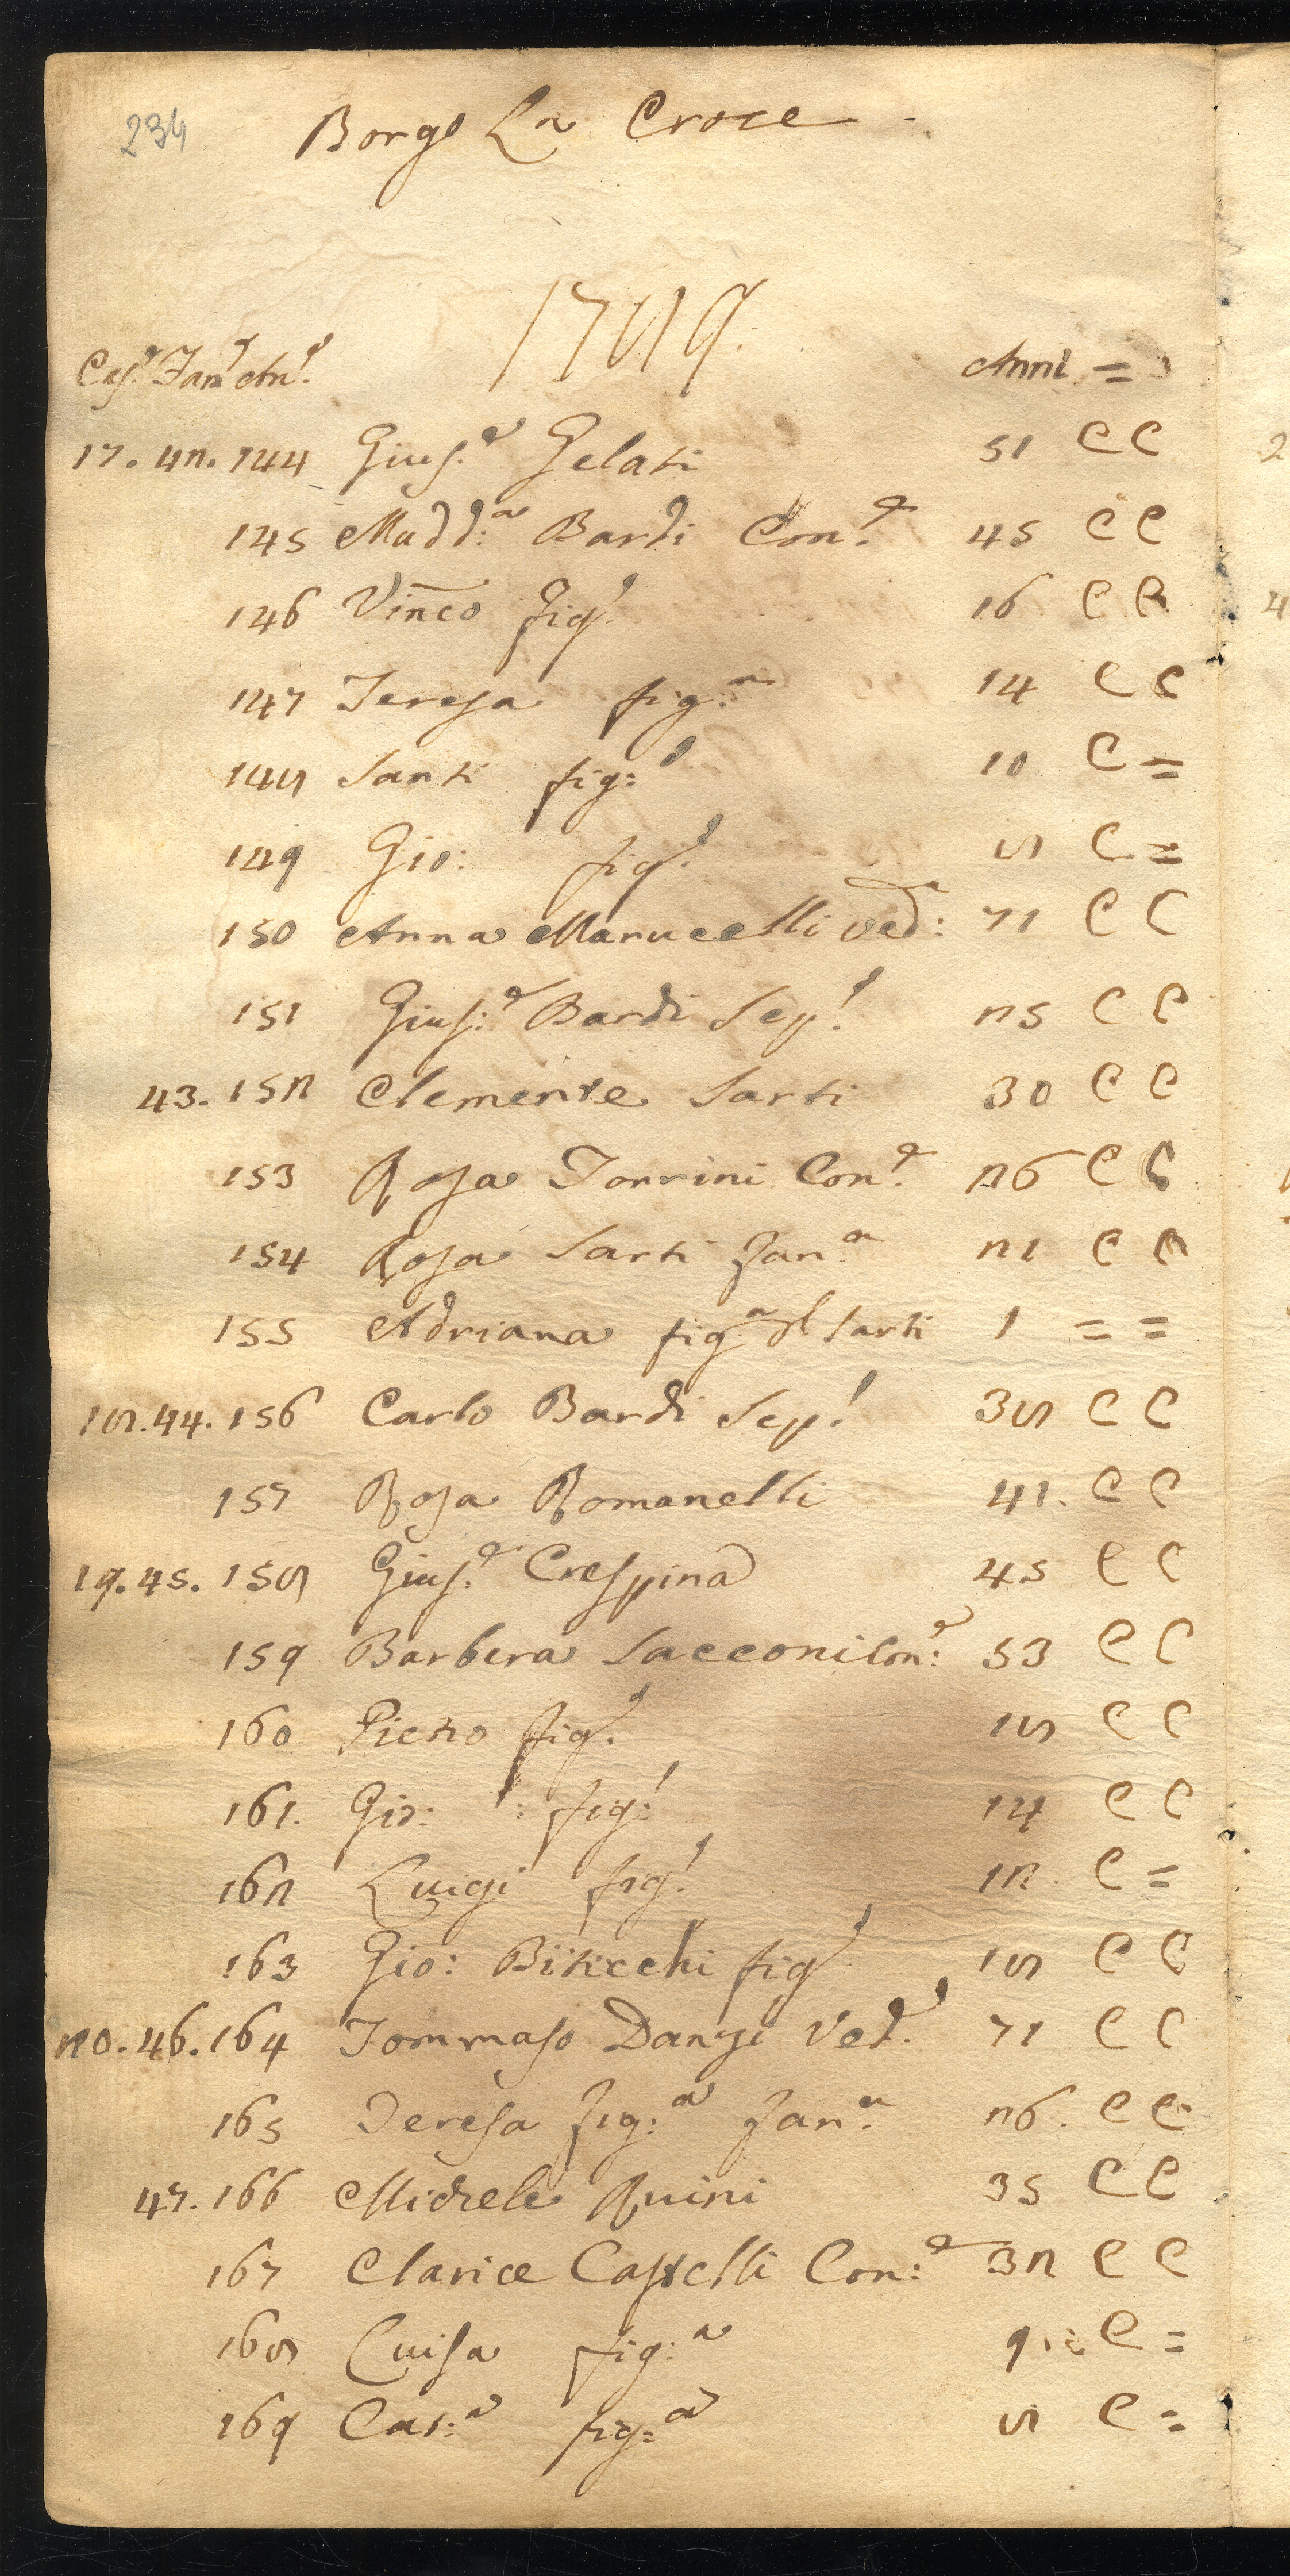 234
Borgo La Croce
1789.
Cas.e Fam.e An.e Anni =
17. 42. 144 Gius.e Gelati 51 C C
145 Madd:a Bardi Con.e 45 C C
146 Vinco fig.o 16 C C
147 Teresa fig:a 14 C C
148 Santi fig:o 10 C =
149 Gio: fig.o 8 C =
150 Anna Marucelli ved:a 71 C C
151 Gius:e Bardi Sep.o 25 C C
43. 152 Clemente Sarti 30 C C
153 Rosa Torrini Con.e 26 C C
154 Rosa Sarti Fan.a 21 C C
155 Adriana fig.a del Sarti 1 = =
18. 44. 156 Carlo Bardi Sep.o 38 C C
157 Rosa Romanelli 41. C C
19. 45. 158 Gius.e Crespina 45 C C
159 Barbera Sacconi Con:e 53 C C
160 Pietro fig.o 18 C C
161. Gio: fig:o 14 C C
162 Luigi fig.o 12. C =
163 Gio: Biticchi fig.o 18 C C
20. 46. 164 Tommaso Dangi Ved.o 71 C C
165 Teresa fig:a Fan.a 26. C C
47. 166 Michele Ruini 35 C C
167 Clarice Castelli Con:e 32 C C
168 Luisa fig:a 9 C =
169 Cat:a fig:a 8 C =